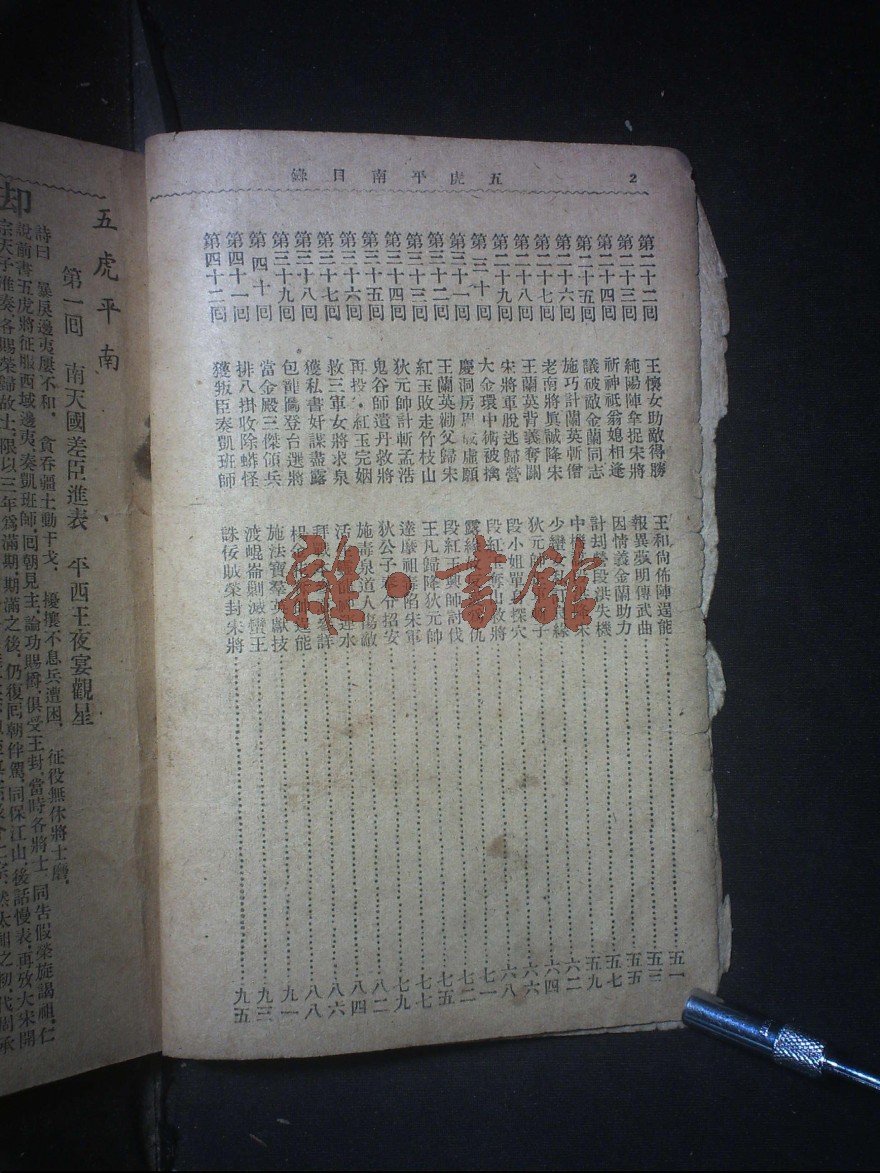 五虎平南目錄 2
第二十二回 王懷女助敵得勝 王和尙佈陣逞能 五一
第二十三回 純陽陣拿捉宋將 報異夢明傳武曲 五三
第二十四回 祈神祇翁媳相逢 因情義金蘭助力 五五
第二十五回 議破敵金蘭同志 計刦營段洪失機 五七
第二十六回 施巧計蘭英斬僧 中機 五九
第二十七回 老南將眞誠降宋 少蠻 六二
第二十八回 王蘭英背義奪關 狄元帥 子 六四
第二十九回 宋將軍脫逃歸營 段小姐單身探穴 六六
第三十回 大金環中術被擒 段紅玉奪山救將 六八
第三十一回 慶洞房周成虛願 露 仇 七一
第三十二回 王蘭英勸父歸宋 段紅玉興師討伐 七二
第三十三回 紅玉敗走竹枝山 王凡歸降狄元帥 七五
第三十四回 狄元帥計斬孟浩 達摩祖 陷宋軍 七七
第三十五回 鬼谷師遣丹救將 狄公子奉令招安 七九
第三十六回 再投 紅玉完姻 施毒泉道人傷敵 八二
第三十七回 救三軍女將求泉 活 水 八四
第三十八回 獲私書奸謀盡露 拜 詳 八六
第三十九回 包龍圖登台選將 楊 能 八八
第四十回 當金殿三傑領兵 施法寶羣英獻技 九一
第四十一回 排八掛收除蟒怪 渡崐崙剿滅蠻王 九三
第四十二回 獲叛臣奏凱班師 誅佞賊榮封宋將 九五
雜·書館
五虎平南
第一回 南天國差臣進表 平西王夜宴觀星
詩曰 暴戾邊夷屢不和， 貪吞疆土動干戈， 擾攘不息兵遭困， 征役無休將士磨，
却說前書五虎將征服西域邊夷，奏凱班師，回朝見主，論功賜爵，俱受王封，當時各將士，同告假榮旋謁祖，仁
宗天子准奏，各賜榮歸故土，限以三年爲滿期，期滿之後，仍復回朝伴駕，同保江山，後話慢表，再攷大宋開